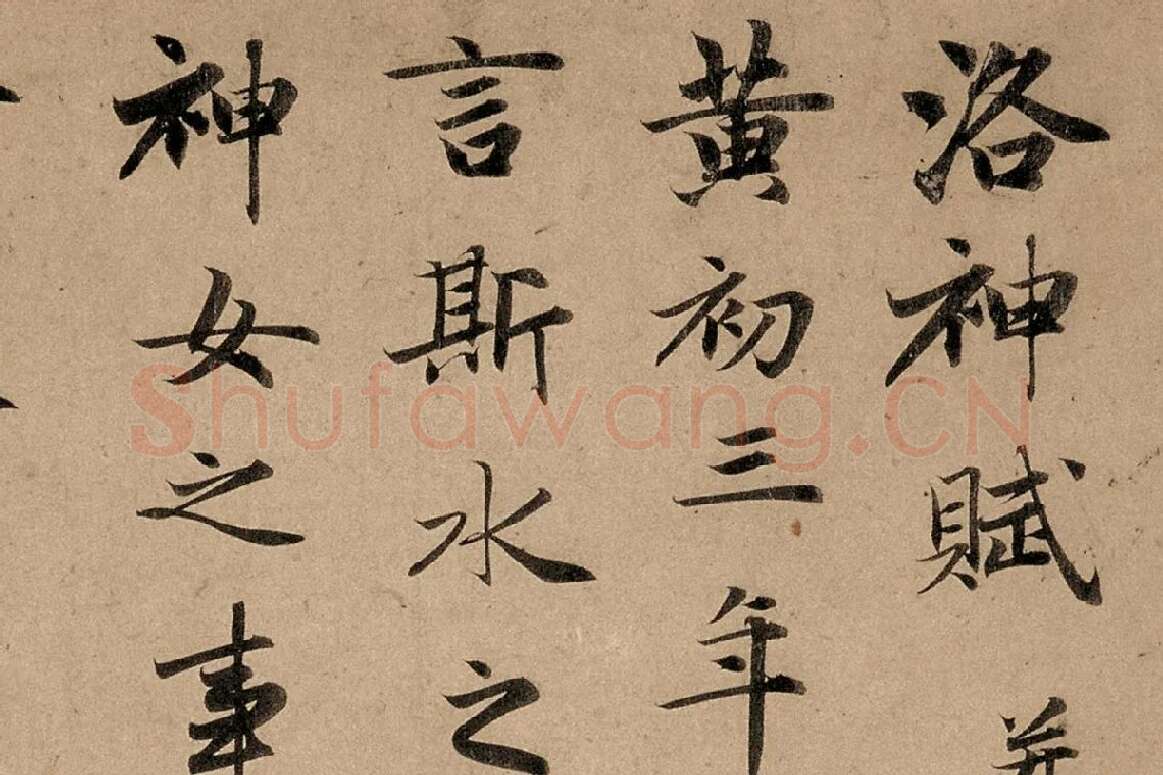 洛神賦并
黃初三年
言斯水之
神女之事
Shufawang.CN